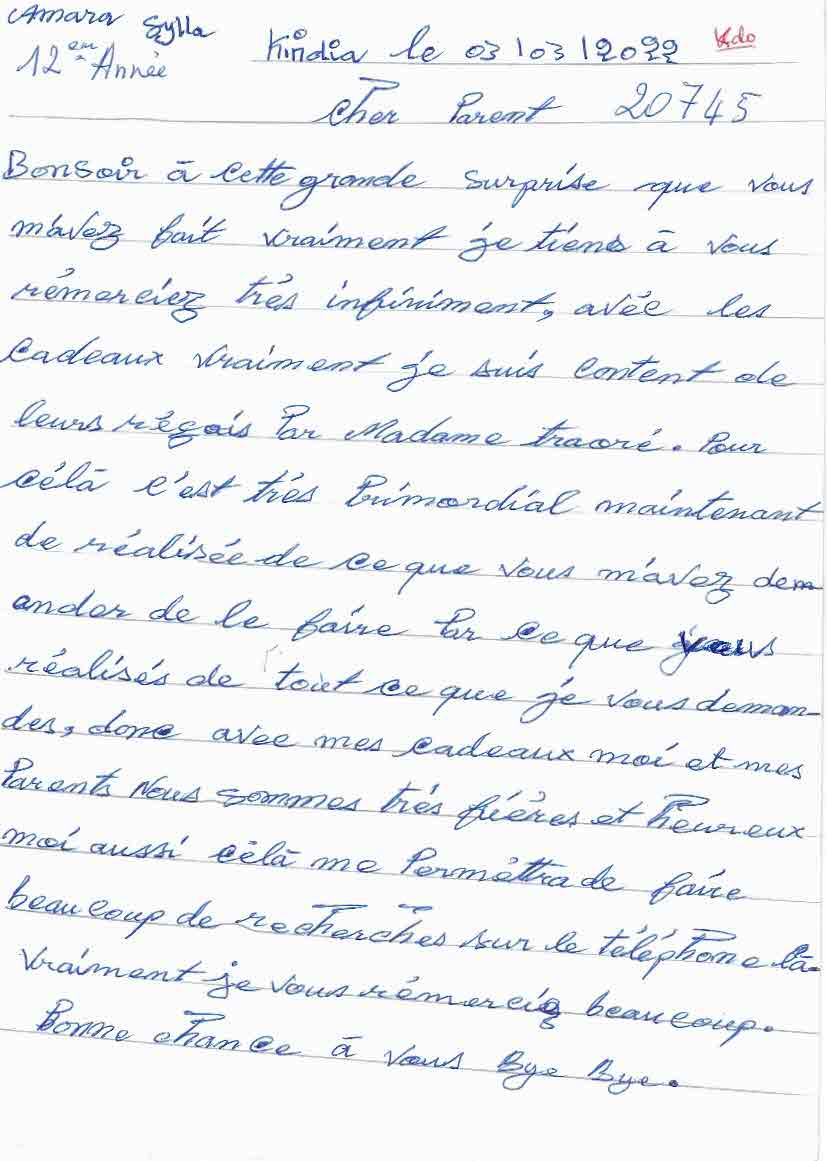 Amara Sylla
12em Année
Kindia le 03/03/2022
Kdo
Cher Parent 20745
Bonsoir à cette grande surprise que vous
m'avez fait vraiment je tiens à vous
rémerciez très infiniment, avéc les
cadeaux vraiment je suis content de
leurs réçois Par Madame traoré. Pour
célà c'est très Primordial maintenant
de réalisée de ce que vous m'avez dem-
ander de le faire Par ce que vous
réalisés de tout ce que je vous deman-
des, donc avec mes cadeaux moi et mes
Parents Nous sommes très fiéres et heureux
moi aussi célà me Perméttra de faire
beaucoup de recherches sur le téléphone là.
Vraiment je vous rémerciez beaucoup.
Bonne chance à vous Bye Bye.